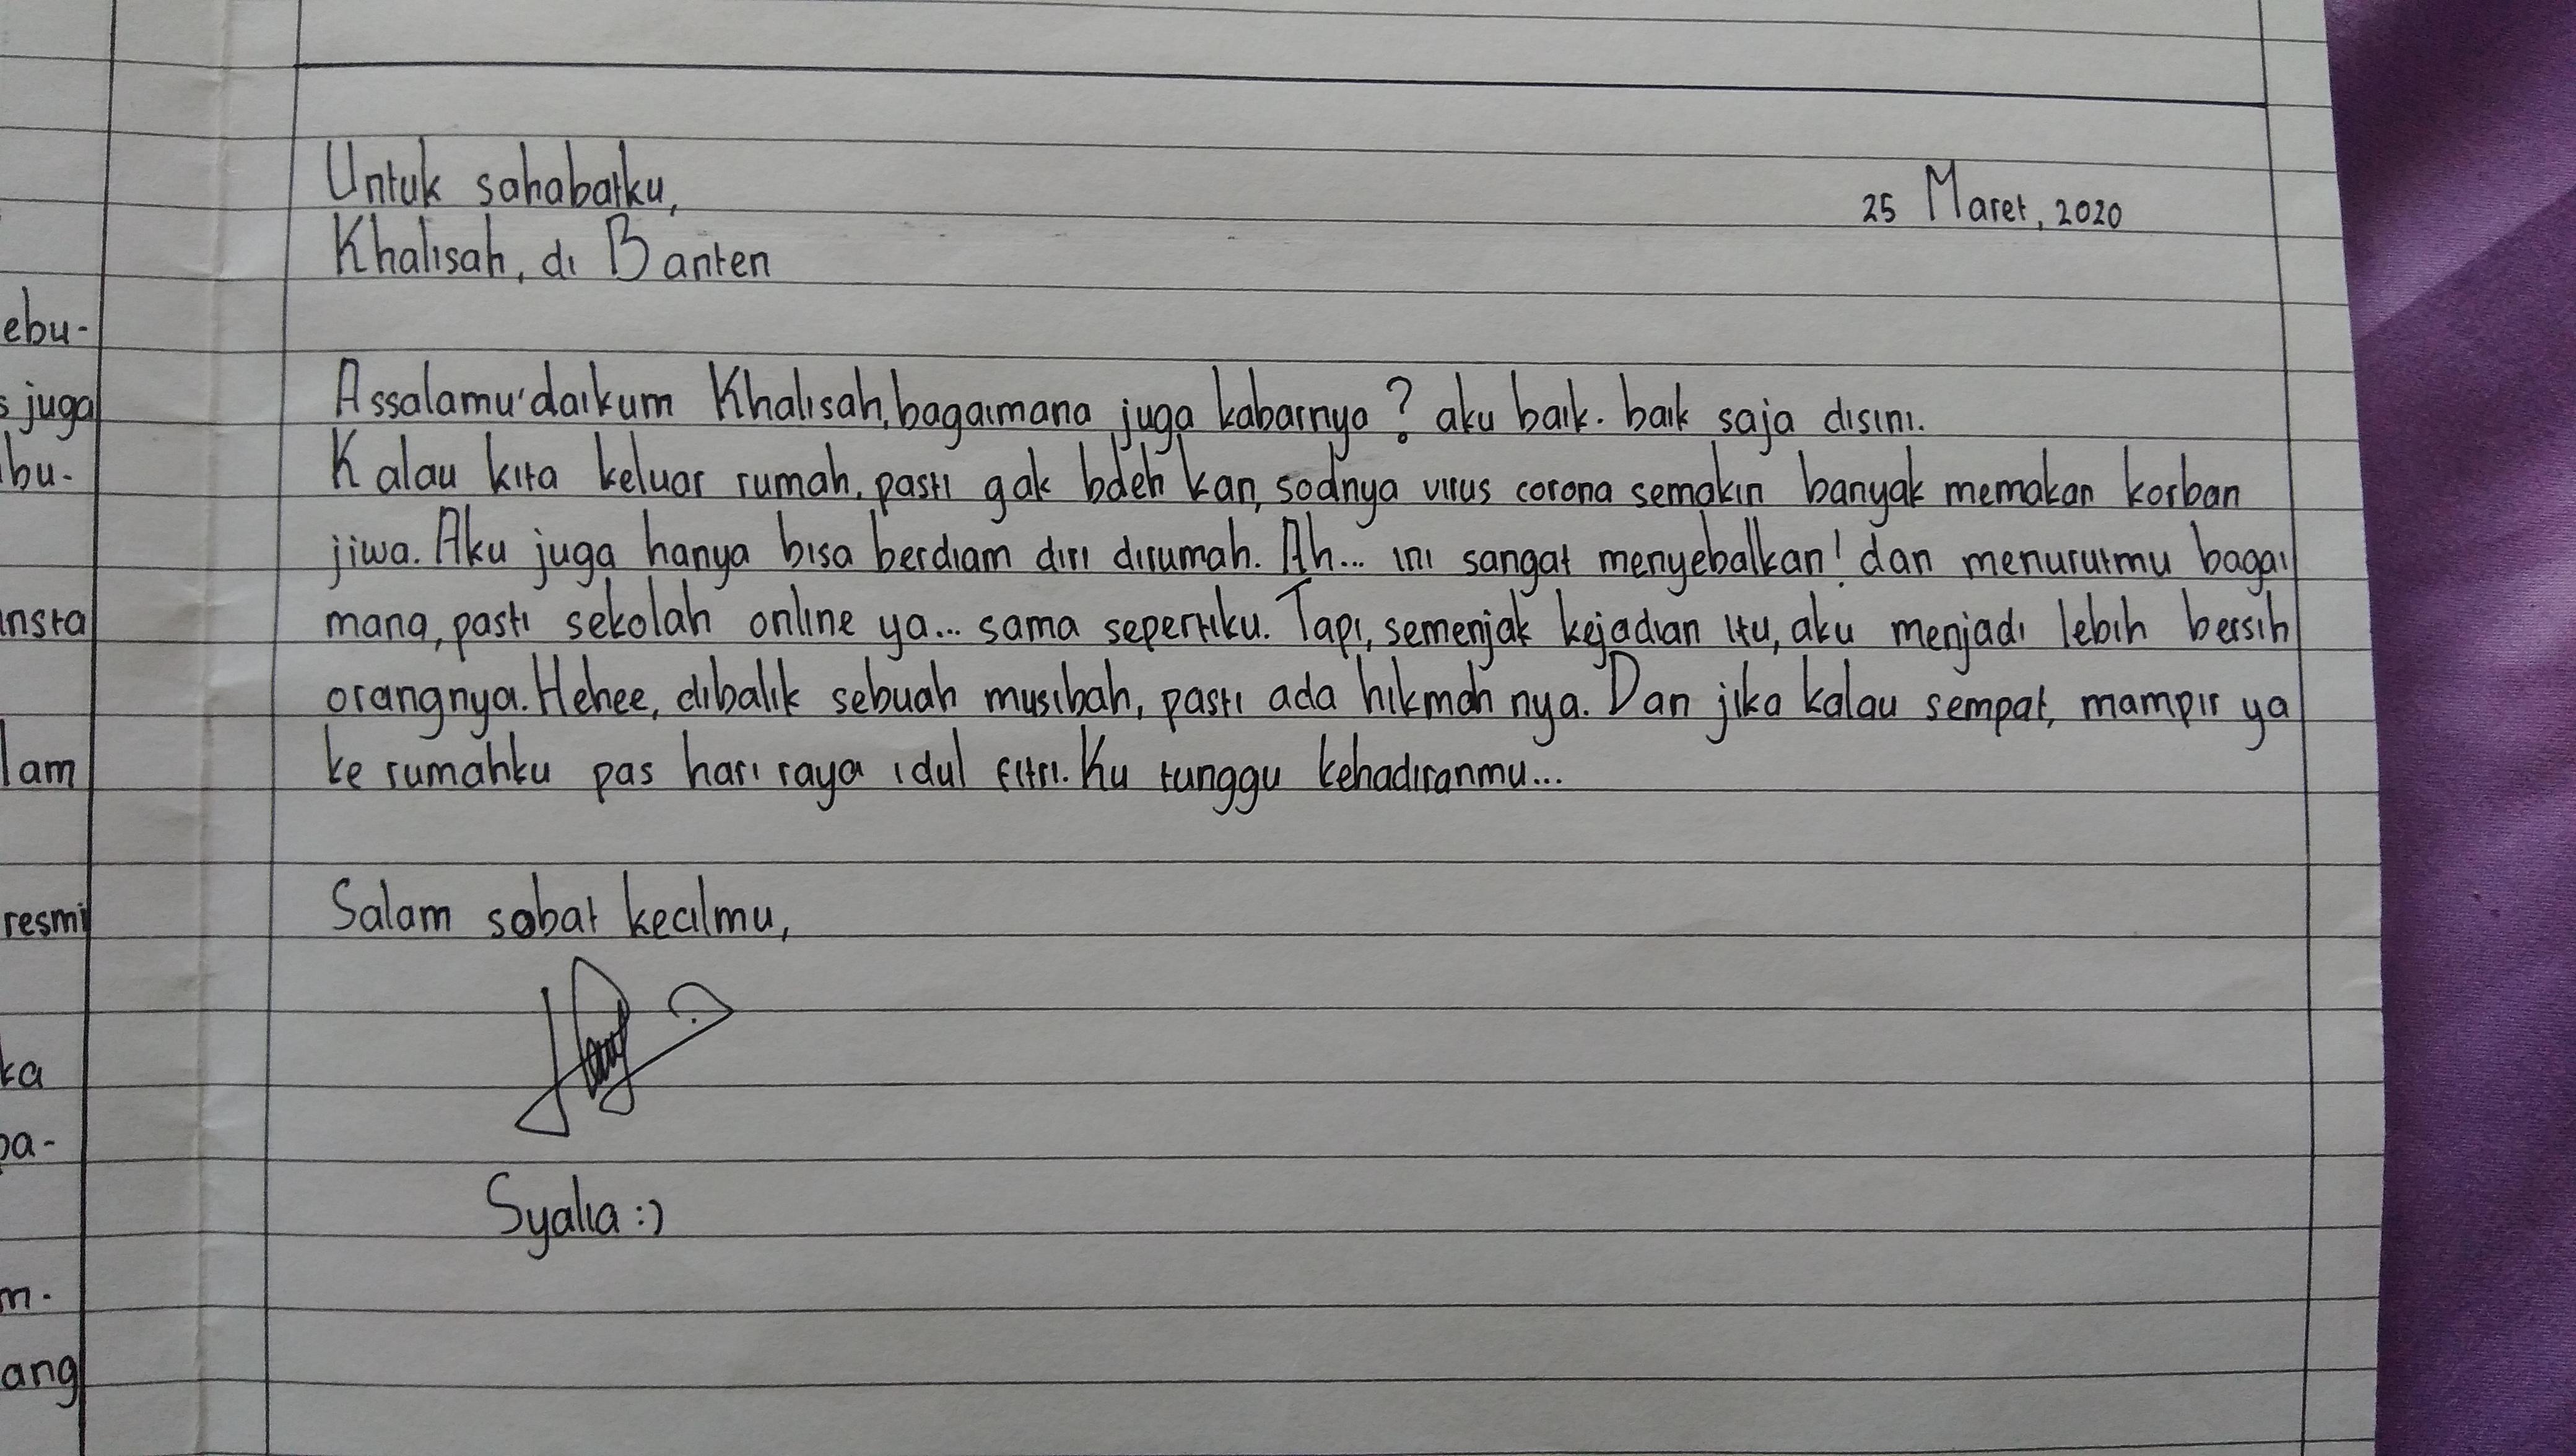 Untuk sahabatku,
25 Maret, 2020
Khalisah, di Banten
Assalamu'alaikum Khalisah, bagaimana juga kabarnya? aku baik-baik saja disini.
Kalau kita keluar rumah, pasti gak boleh kan, soalnya virus corona semakin banyak memakan korban
jiwa. Aku juga hanya bisa berdiam diri dirumah. Ah... ini sangat menyebalkan! dan menurutmu bagai
mana, pasti sekolah online ya... sama sepertiku. Tapi, semenjak kejadian itu, aku menjadi lebih bersih
orangnya. Hehee, dibalik sebuah musibah, pasti ada hikmah nya. Dan jika kalau sempat, mampir ya
ke rumahku pas hari raya idul fitri. Ku tunggu kehadiranmu...
Salam sobat kecilmu,
Syalia :)
ebu-
s juga
bu-
insta
lam
resmi
ka
pa-
m.
ang